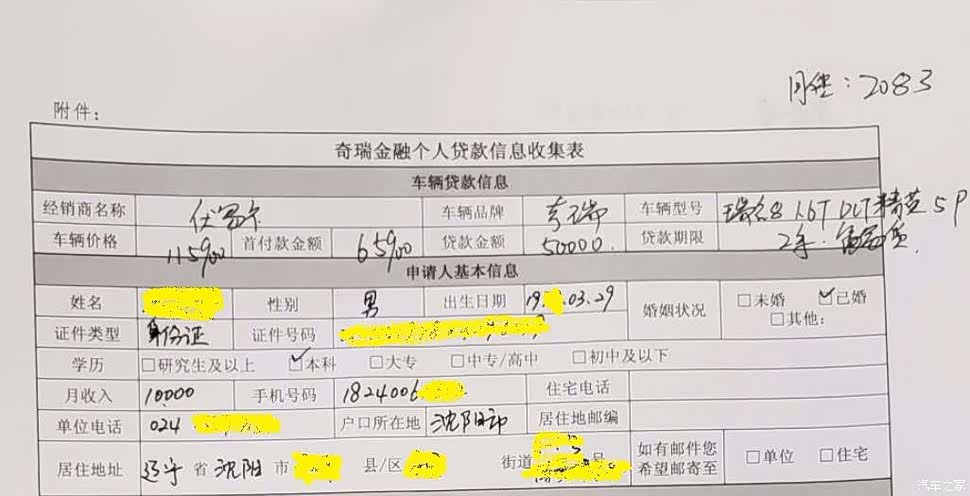 月供：2083
附件：
奇瑞金融个人贷款信息收集表
车辆贷款信息
经销商名称 车辆品牌 奇瑞 车辆型号 瑞虎8 1.6T DCT 精英 5P
车辆价格 115900 首付款金额 65900 贷款金额 50000. 贷款期限 2年.
申请人基本信息
姓名 性别 男 出生日期 19 .03.29 婚姻状况 □未婚 ☑已婚 □其他:
证件类型 身份证 证件号码
学历 □研究生及以上 ☑本科 □大专 □中专/高中 □初中及以下
月收入 10000 手机号码 1824006 住宅电话
单位电话 024 户口所在地 沈阳市 居住地邮编
居住地址 辽宁 省 沈阳 市 县/区 街道 号 如有邮件您希望邮寄至 □单位 □住宅
汽车之家